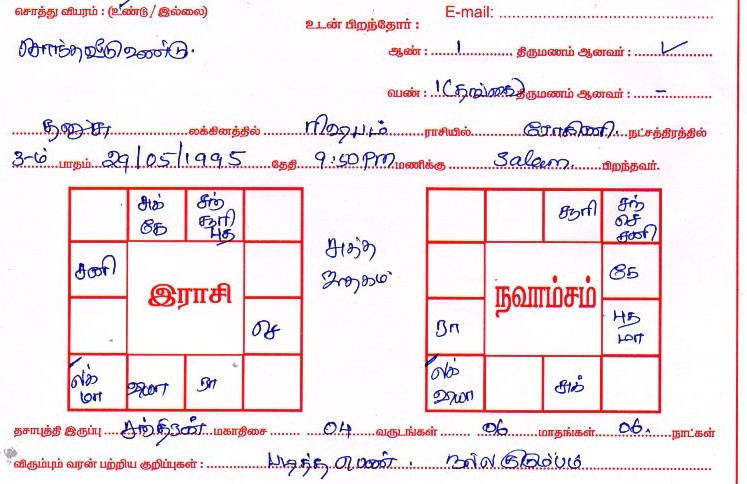 சொத்து விபரம் : (உண்டு / இல்லை)
உடன் பிறந்தோர் :
E-mail:
சொந்தவீடு உண்டு.
ஆண் : 1 திருமணம் ஆனவர் : ✓
பெண் : 1 (தங்கை) திருமணம் ஆனவர் : -
தனுசு லக்கினத்தில் ரிஷபம் ராசியில் ரோகிணி நட்சத்திரத்தில்
3-ம் பாதம் 29/05/1995 தேதி 9:50 PM மணிக்கு Salem பிறந்தவர்.
சுக் கே
சந் சூரி புத
சனி
இராசி
செ
லக் மா
ரா
சூரி
சந் செ சனி
கே
நவாம்சம்
புத மா
ரா
லக்
சுக்
தசாபுத்தி இருப்பு சந்திரன் மகாதிசை 04 வருடங்கள் 06 மாதங்கள் 06 நாட்கள்
விரும்பும் வரன் பற்றிய குறிப்புகள் : படித்த பெண். நல்ல குடும்பம்